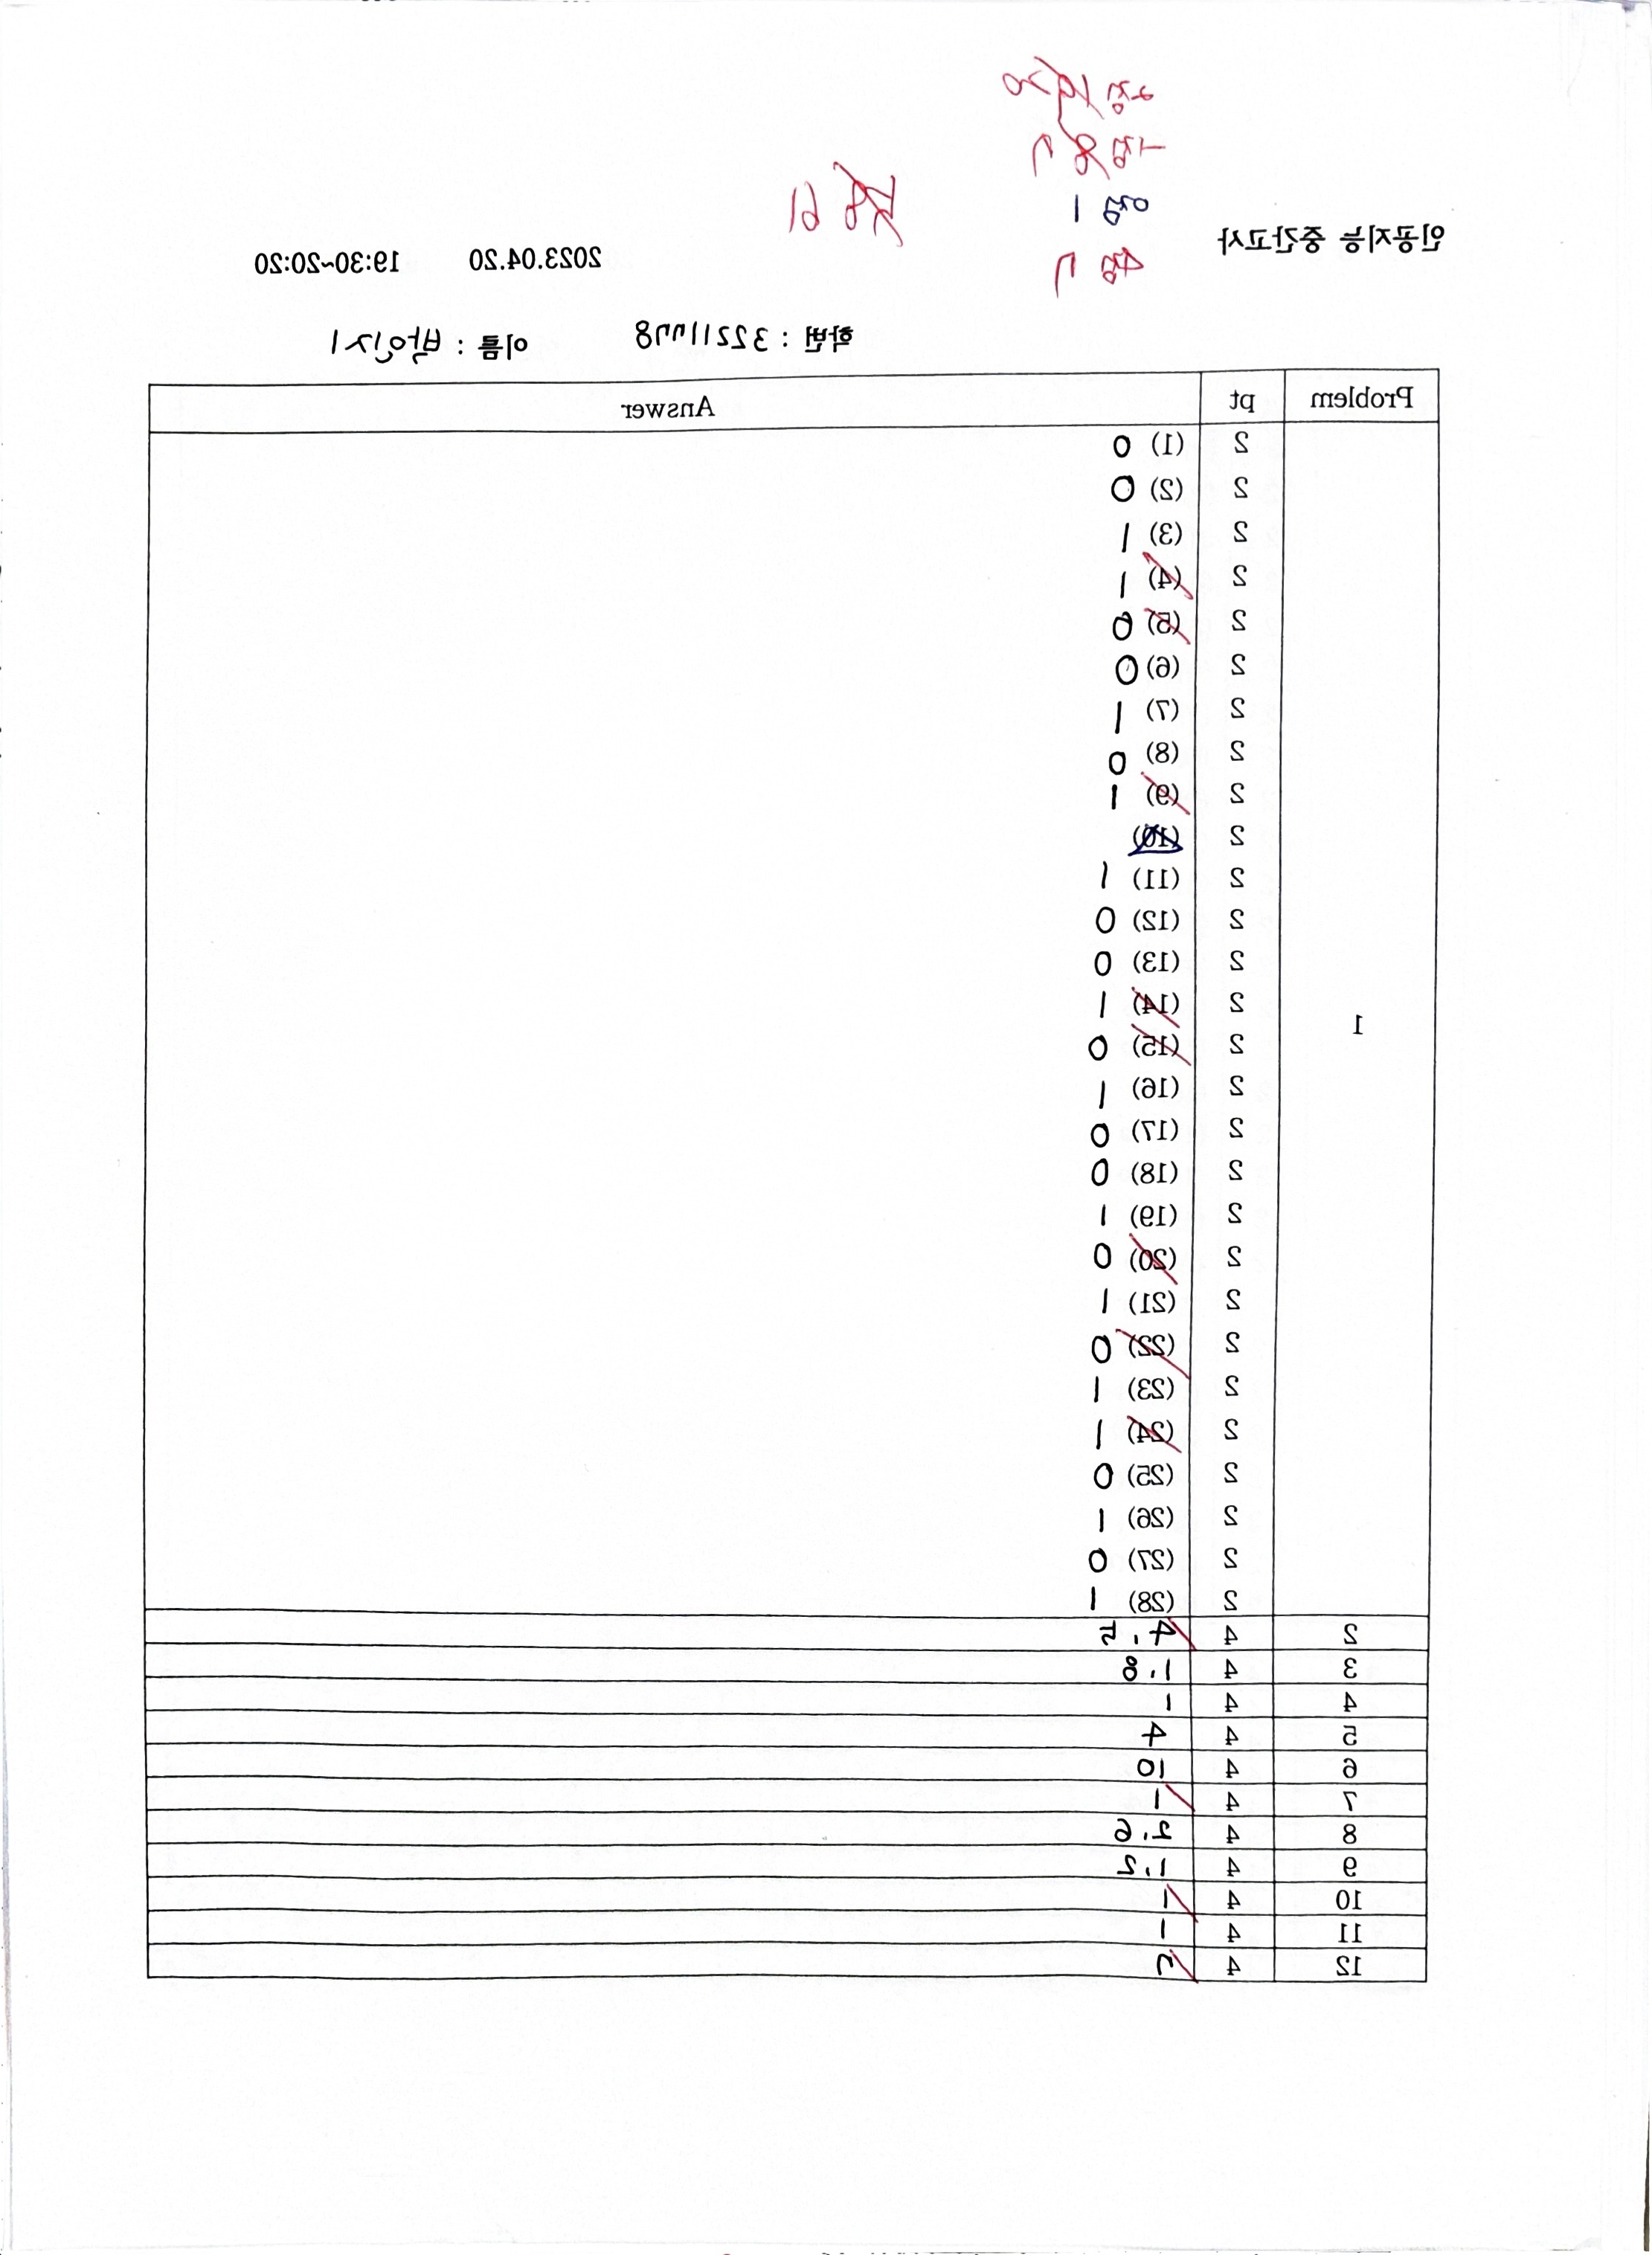 2점 20
-1점 7
0점 1
인공지능 중간고사 4점 7 61 2023.04.20 19:30~20:20
학번 : 32211778 이름 : 박인지
Problem pt Answer
1
2 (1) 0
2 (2) 0
2 (3) 1
2 (4) 1
2 (5) 0
2 (6) 0
2 (7) 1
2 (8) 0
2 (9) 1
2 (10)
2 (11) 1
2 (12) 0
2 (13) 0
2 (14) 1
2 (15) 0
2 (16) 1
2 (17) 0
2 (18) 0
2 (19) 1
2 (20) 0
2 (21) 1
2 (22) 0
2 (23) 1
2 (24) 1
2 (25) 0
2 (26) 1
2 (27) 0
2 (28) 1
2 4 4.5
3 4 1.8
4 4 1
5 4 4
6 4 10
7 4 1
8 4 2.6
9 4 1.2
10 4 1
11 4 1
12 4 7